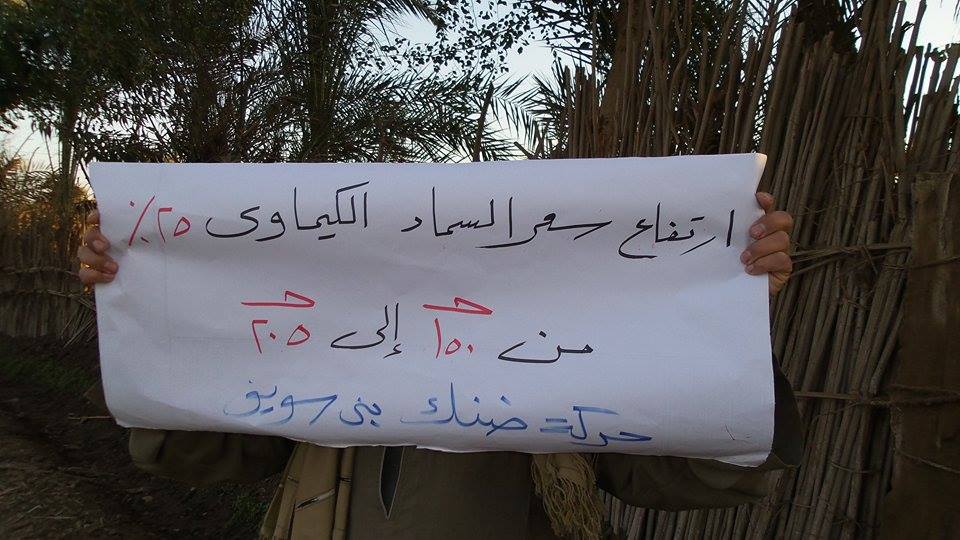 ارتفاع سعر السماد الكيماوى ٢٥٪
من ١٥٠ جـ إلى ٢٠٥ جـ
حركة ضنك بنى سويف